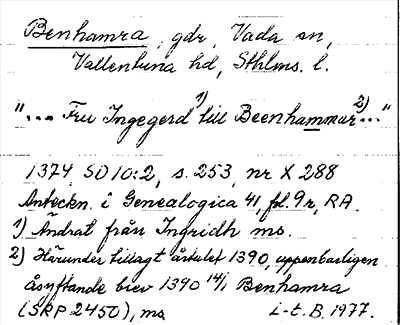 Benhamra, gdr, Vada sn,
Vallentuna hd, Sthlms. l.
"... Fru Ingegerd 1) till Beenhammar 2) ..."
1374 SD 10:2, s. 253, nr X 288
Anteckn. i Genealogica 41, fol. 9 r, RA.
1) Ändrat från Ingridh ms.
2) Härunder tillagt årtalet 1390, uppenbarligen
åsyftande brev 1390 14/1 Benhamra
(SRP 2450), ms i-t. B. 1977.